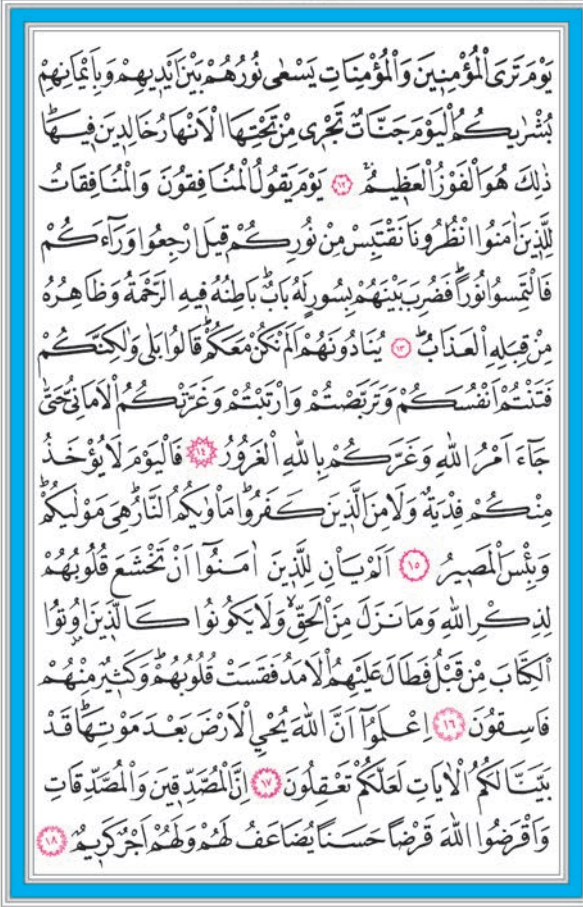 يَوْمَ تَرَى الْمُؤْمِن۪ينَ وَالْمُؤْمِنَاتِ يَسْعٰى نُورُهُمْ بَيْنَ اَيْد۪يهِمْ وَبِاَيْمَانِهِمْ
بُشْرٰيكُمُ الْيَوْمَ جَنَّاتٌ تَجْر۪ي مِنْ تَحْتِهَا الْاَنْهَارُ خَالِد۪ينَ ف۪يهَاۜ
ذٰلِكَ هُوَ الْفَوْزُ الْعَظ۪يمُۚ ﴿١٢﴾ يَوْمَ يَقُولُ الْمُنَافِقُونَ وَالْمُنَافِقَاتُ
لِلَّذ۪ينَ اٰمَنُوا انْظُرُونَا نَقْتَبِسْ مِنْ نُورِكُمْۚ ق۪يلَ ارْجِعُوا وَرَٓاءَكُمْ
فَالْتَمِسُوا نُورًاۜ فَضُرِبَ بَيْنَهُمْ بِسُورٍ لَهُ بَابٌۜ بَاطِنُهُ ف۪يهِ الرَّحْمَةُ وَظَاهِرُهُ
مِنْ قِبَلِهِ الْعَذَابُۜ ﴿١٣﴾ يُنَادُونَهُمْ اَلَمْ نَكُنْ مَعَكُمْۜ قَالُوا بَلٰى وَلٰكِنَّكُمْ
فَتَنْتُمْ اَنْفُسَكُمْ وَتَرَبَّصْتُمْ وَارْتَبْتُمْ وَغَرَّتْكُمُ الْاَمَانِيُّ حَتّٰى
جَٓاءَ اَمْرُ اللّٰهِ وَغَرَّكُمْ بِاللّٰهِ الْغَرُورُ ﴿١٤﴾ فَالْيَوْمَ لَا يُؤْخَذُ
مِنْكُمْ فِدْيَةٌ وَلَا مِنَ الَّذ۪ينَ كَفَرُواۜ مَأْوٰيكُمُ النَّارُۜ هِيَ مَوْلٰيكُمْۜ
وَبِئْسَ الْمَص۪يرُ ﴿١٥﴾ اَلَمْ يَأْنِ لِلَّذ۪ينَ اٰمَنُٓوا اَنْ تَخْشَعَ قُلُوبُهُمْ
لِذِكْرِ اللّٰهِ وَمَا نَزَلَ مِنَ الْحَقِّۙ وَلَا يَكُونُوا كَالَّذ۪ينَ اُو۫تُوا
الْكِتَابَ مِنْ قَبْلُ فَطَالَ عَلَيْهِمُ الْاَمَدُ فَقَسَتْ قُلُوبُهُمْۜ وَكَث۪يرٌ مِنْهُمْ
فَاسِقُونَ ﴿١٦﴾ اِعْلَمُٓوا اَنَّ اللّٰهَ يُحْيِ الْاَرْضَ بَعْدَ مَوْتِهَاۜ قَدْ
بَيَّنَّا لَكُمُ الْاٰيَاتِ لَعَلَّكُمْ تَعْقِلُونَ ﴿١٧﴾ اِنَّ الْمُصَّدِّق۪ينَ وَالْمُصَّدِّقَاتِ
وَاَقْرَضُوا اللّٰهَ قَرْضًا حَسَنًا يُضَاعَفُ لَهُمْ وَلَهُمْ اَجْرٌ كَر۪يمٌ ﴿١٨﴾